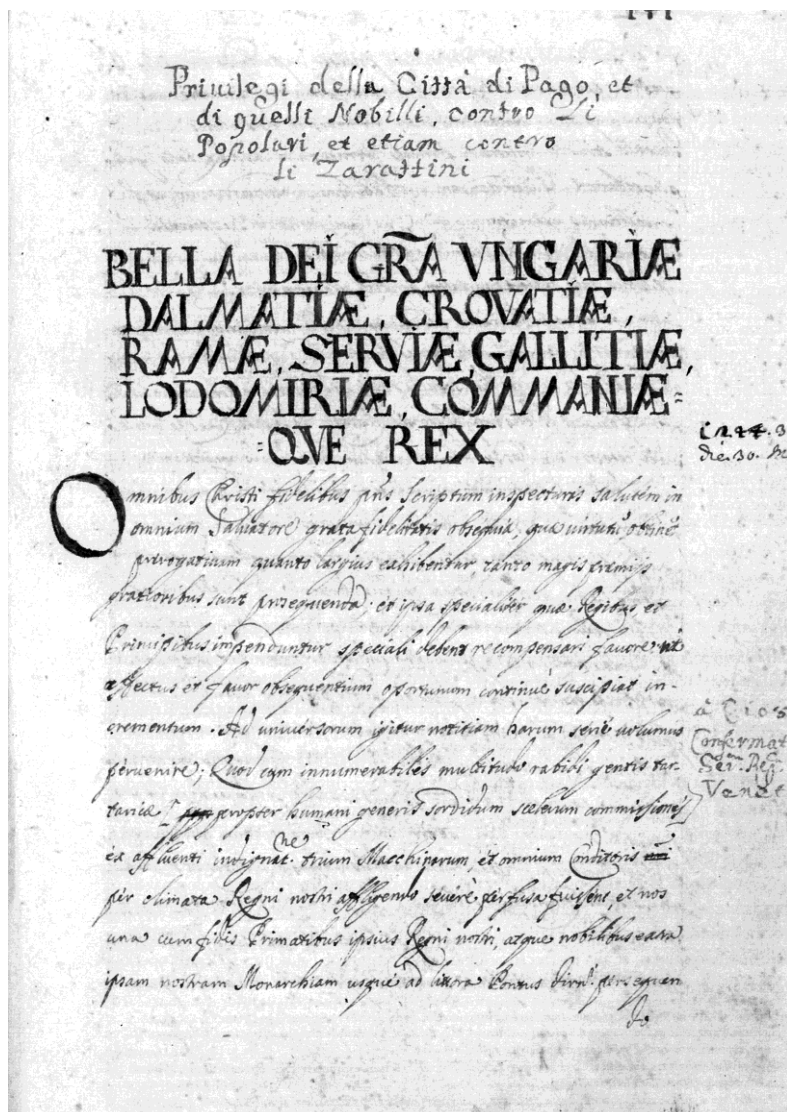 Priuilegi della Città di Pago et
di quelli Nobilli, contro Li
Popolari, et etiam contro
li Zarattini
BELLA DEI GRĀA VNGARIÆ
DALMATIÆ, CROVATIÆ,
RAMÆ, SERVIÆ, GALLITIÆ,
LODOMIRIÆ, COMMANIÆ=
=QVE REX
1244. 3
die. 30.
Omnibus Christi fidelibus pñs scriptum inspecturis salutem in
omnium Saluatore grata fidelitatis obsequia, quæ virtutũ
prærogatiuam quanto largius exhibentur, tanto magis præmijs
gratioribus sunt prosequenda; et ipsa specialiter quæ Regibus et
Principibus impenduntur speciali debent recompensari fauore ut
affectus et fauor obsequentium oportunum continuè suscipiat in-
crementum. Ad universorum igitur notitiam harum seriè uolumus
peruenire; Quod cum innumerabilis multitudo rabidi gentis tar-
taricæ propter humani generis sordidum scelerum commissiones
ex affluenti indignat.ne trium Macchinarum, et omnium Conditoris
per climata Regni nostri affligendo seuerè perfusa fuissent, et nos
una cum fidis Primatibus ipsius Regni nostri, atque nobilibus extra
ipsam nostram Monarchiam usque ad littora Pontus persequen
do
à Cios
Confermat
Ser. Reg.
Venet